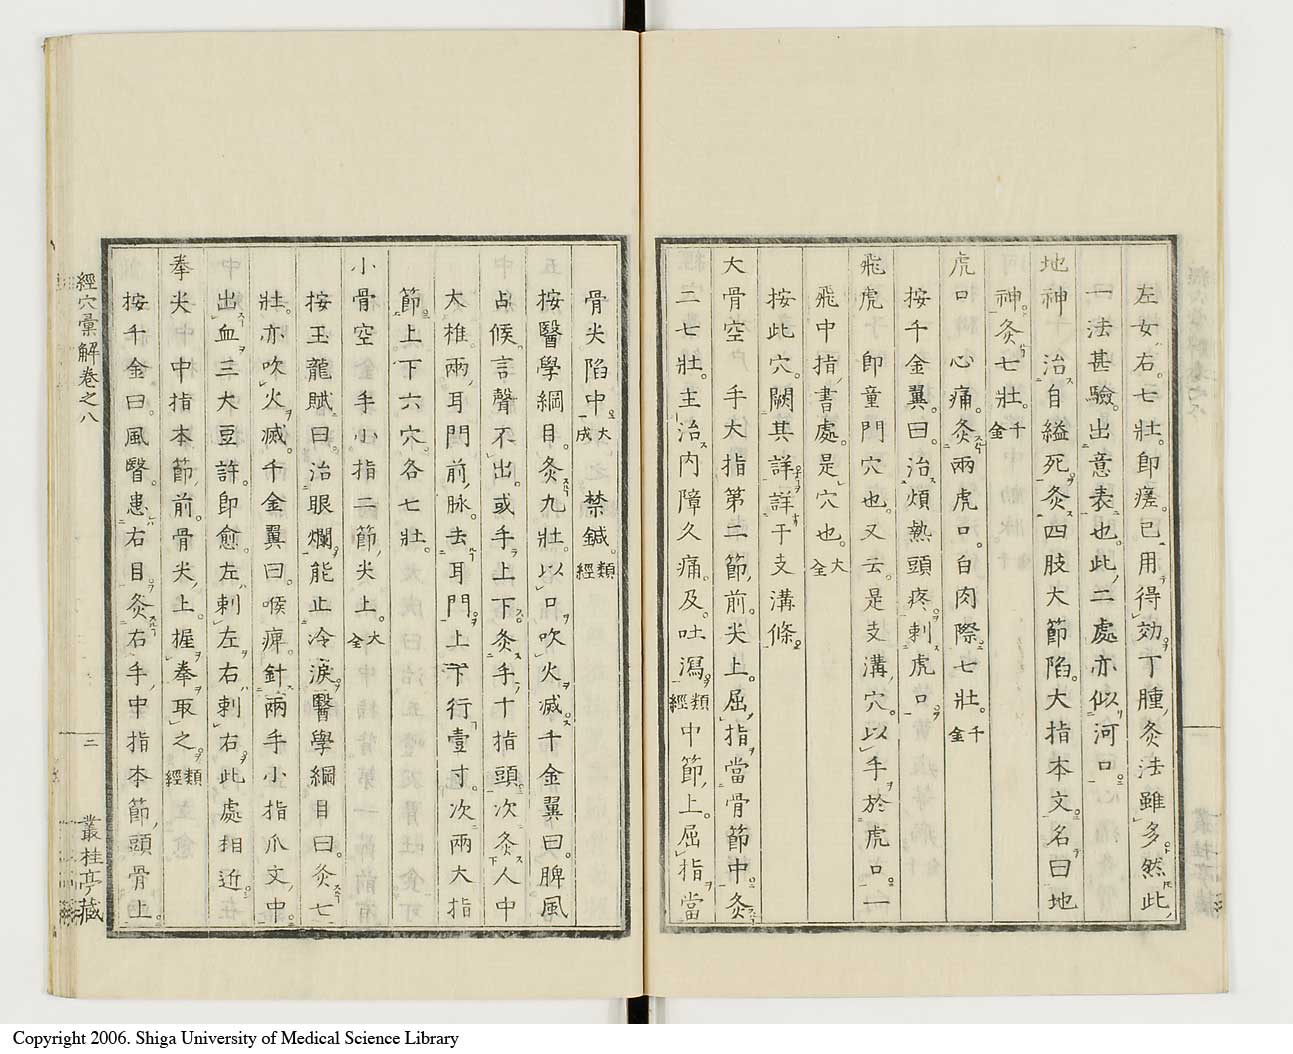 左女右。七壯。即瘥。已用得効。丁腫灸法雖多。然此
一法甚驗。出意表也。此二處亦似河口。
地神　治自縊死。灸四肢大節陷。大指本文。名曰地
神。灸七壯。千金
虎口　心痛。灸兩虎口。白肉際。七壯。千金
按千金翼曰。治煩熱頭疼。刺虎口。
飛虎　即童門穴也。又云。是支溝穴。以手於虎口。一
飛中指書處。是穴也。大全
按此穴。闕其詳。詳于支溝條。
大骨空　手大指第二節前尖上。屈指當骨節中。灸
二七壯。主治内障久痛。及吐瀉。類經中節上。屈指當
骨尖陷中。大成　禁鍼。類經
按醫學綱目。灸九壯。以口吹火滅。千金翼曰。脾風
占候。言聲不出。或手上下。灸手十指頭。次灸人中
大椎。兩耳門前脉。去耳門上下行壹寸。次兩大指
節上下六穴。各七壯。
小骨空　手小指二節尖上。大全
按玉龍賦曰。治眼爛能止冷淚。醫學綱目曰。灸七
壯。亦吹火滅。千金翼曰。喉痺。針兩手小指爪文中
出血。三大豆許。即愈。左刺左。右刺右。此處相近。
奉尖中中指本節前。骨尖上。握奉取之。類經
按千金曰。風瞖。患右目。灸右手中指本節頭骨上
經穴彙解卷之八　二　叢桂亭藏
Copyright 2006. Shiga University of Medical Science Library